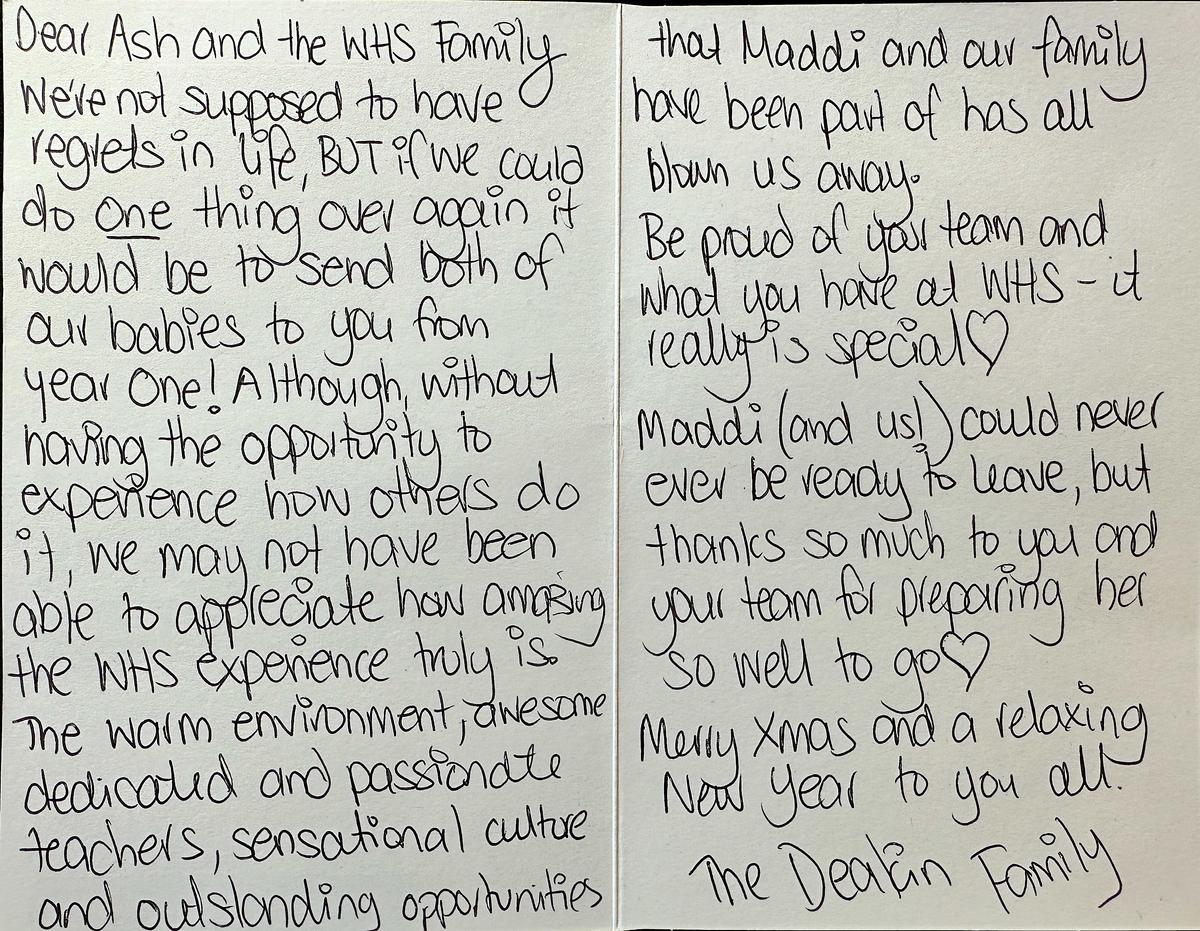 Dear Ash and the WHS Family
We're not supposed to have
regrets in life, BUT if we could
do one thing over again it
would be to send both of
our babies to you from
year One! Although, without
having the opportunity to
experience how others do
it, we may not have been
able to appreciate how amazing
the WHS experience truly is.
The warm environment, awesome
dedicated and passionate
teachers, sensational culture
and outstanding opportunities
that Maddi and our family
have been part of has all
blown us away.
Be proud of your team and
what you have at WHS - it
really is special♡
Maddi (and us!) could never
ever be ready to leave, but
thanks so much to you and
your team for preparing her
so well to go♡
Merry Xmas and a relaxing
New Year to you all.
The Deakin Family